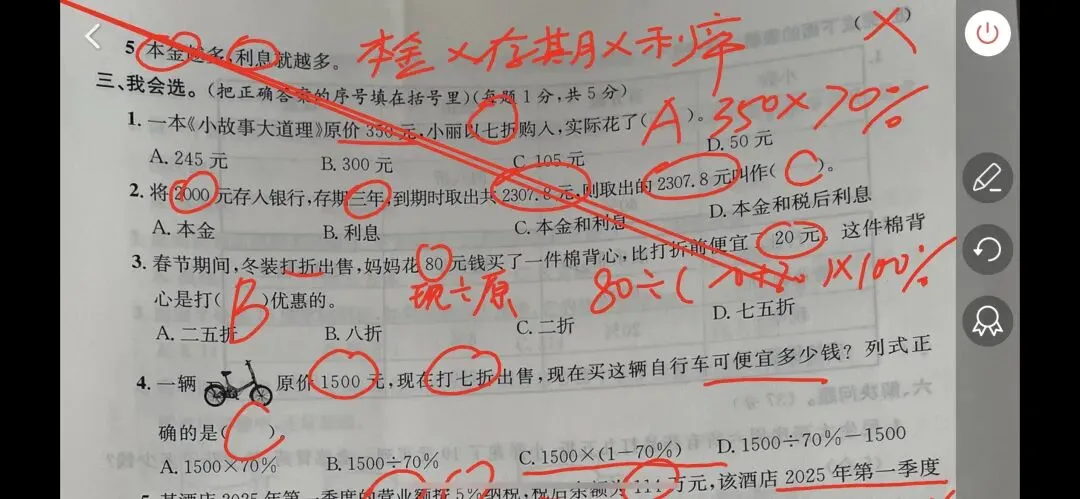 5 本金越多,利息就越多。 本金×存期×利率 (×)
三、我会选。(把正确答案的序号填在括号里)(每题1分,共5分)
1. 一本《小故事大道理》原价350元,小丽以七折购入,实际花了( A )。 350×70%
A. 245元 B. 300元 C. 105元 D. 50元
2. 将2000元存入银行,存期三年,到期时取出共2307.8元,则取出的2307.8元叫作( C )。
A. 本金 B. 利息 C. 本金和利息 D. 本金和税后利息
3. 春节期间,冬装打折出售,妈妈花80元钱买了一件棉背心,比打折前便宜了20元。这件棉背
心是打( B )优惠的。 现÷原 80÷(20+80)×100%
A. 二五折 B. 八折 C. 二折 D. 七五折
4. 一辆 原价1500元,现在打七折出售,现在买这辆自行车可便宜多少钱?列式正
确的是( C )。
A. 1500×70% B. 1500÷70% C. 1500×(1-70%) D. 1500÷70%-1500
5. 某酒店2025年第一季度的营业额按5%纳税,税后余额为114万元,该酒店2025年第一季度